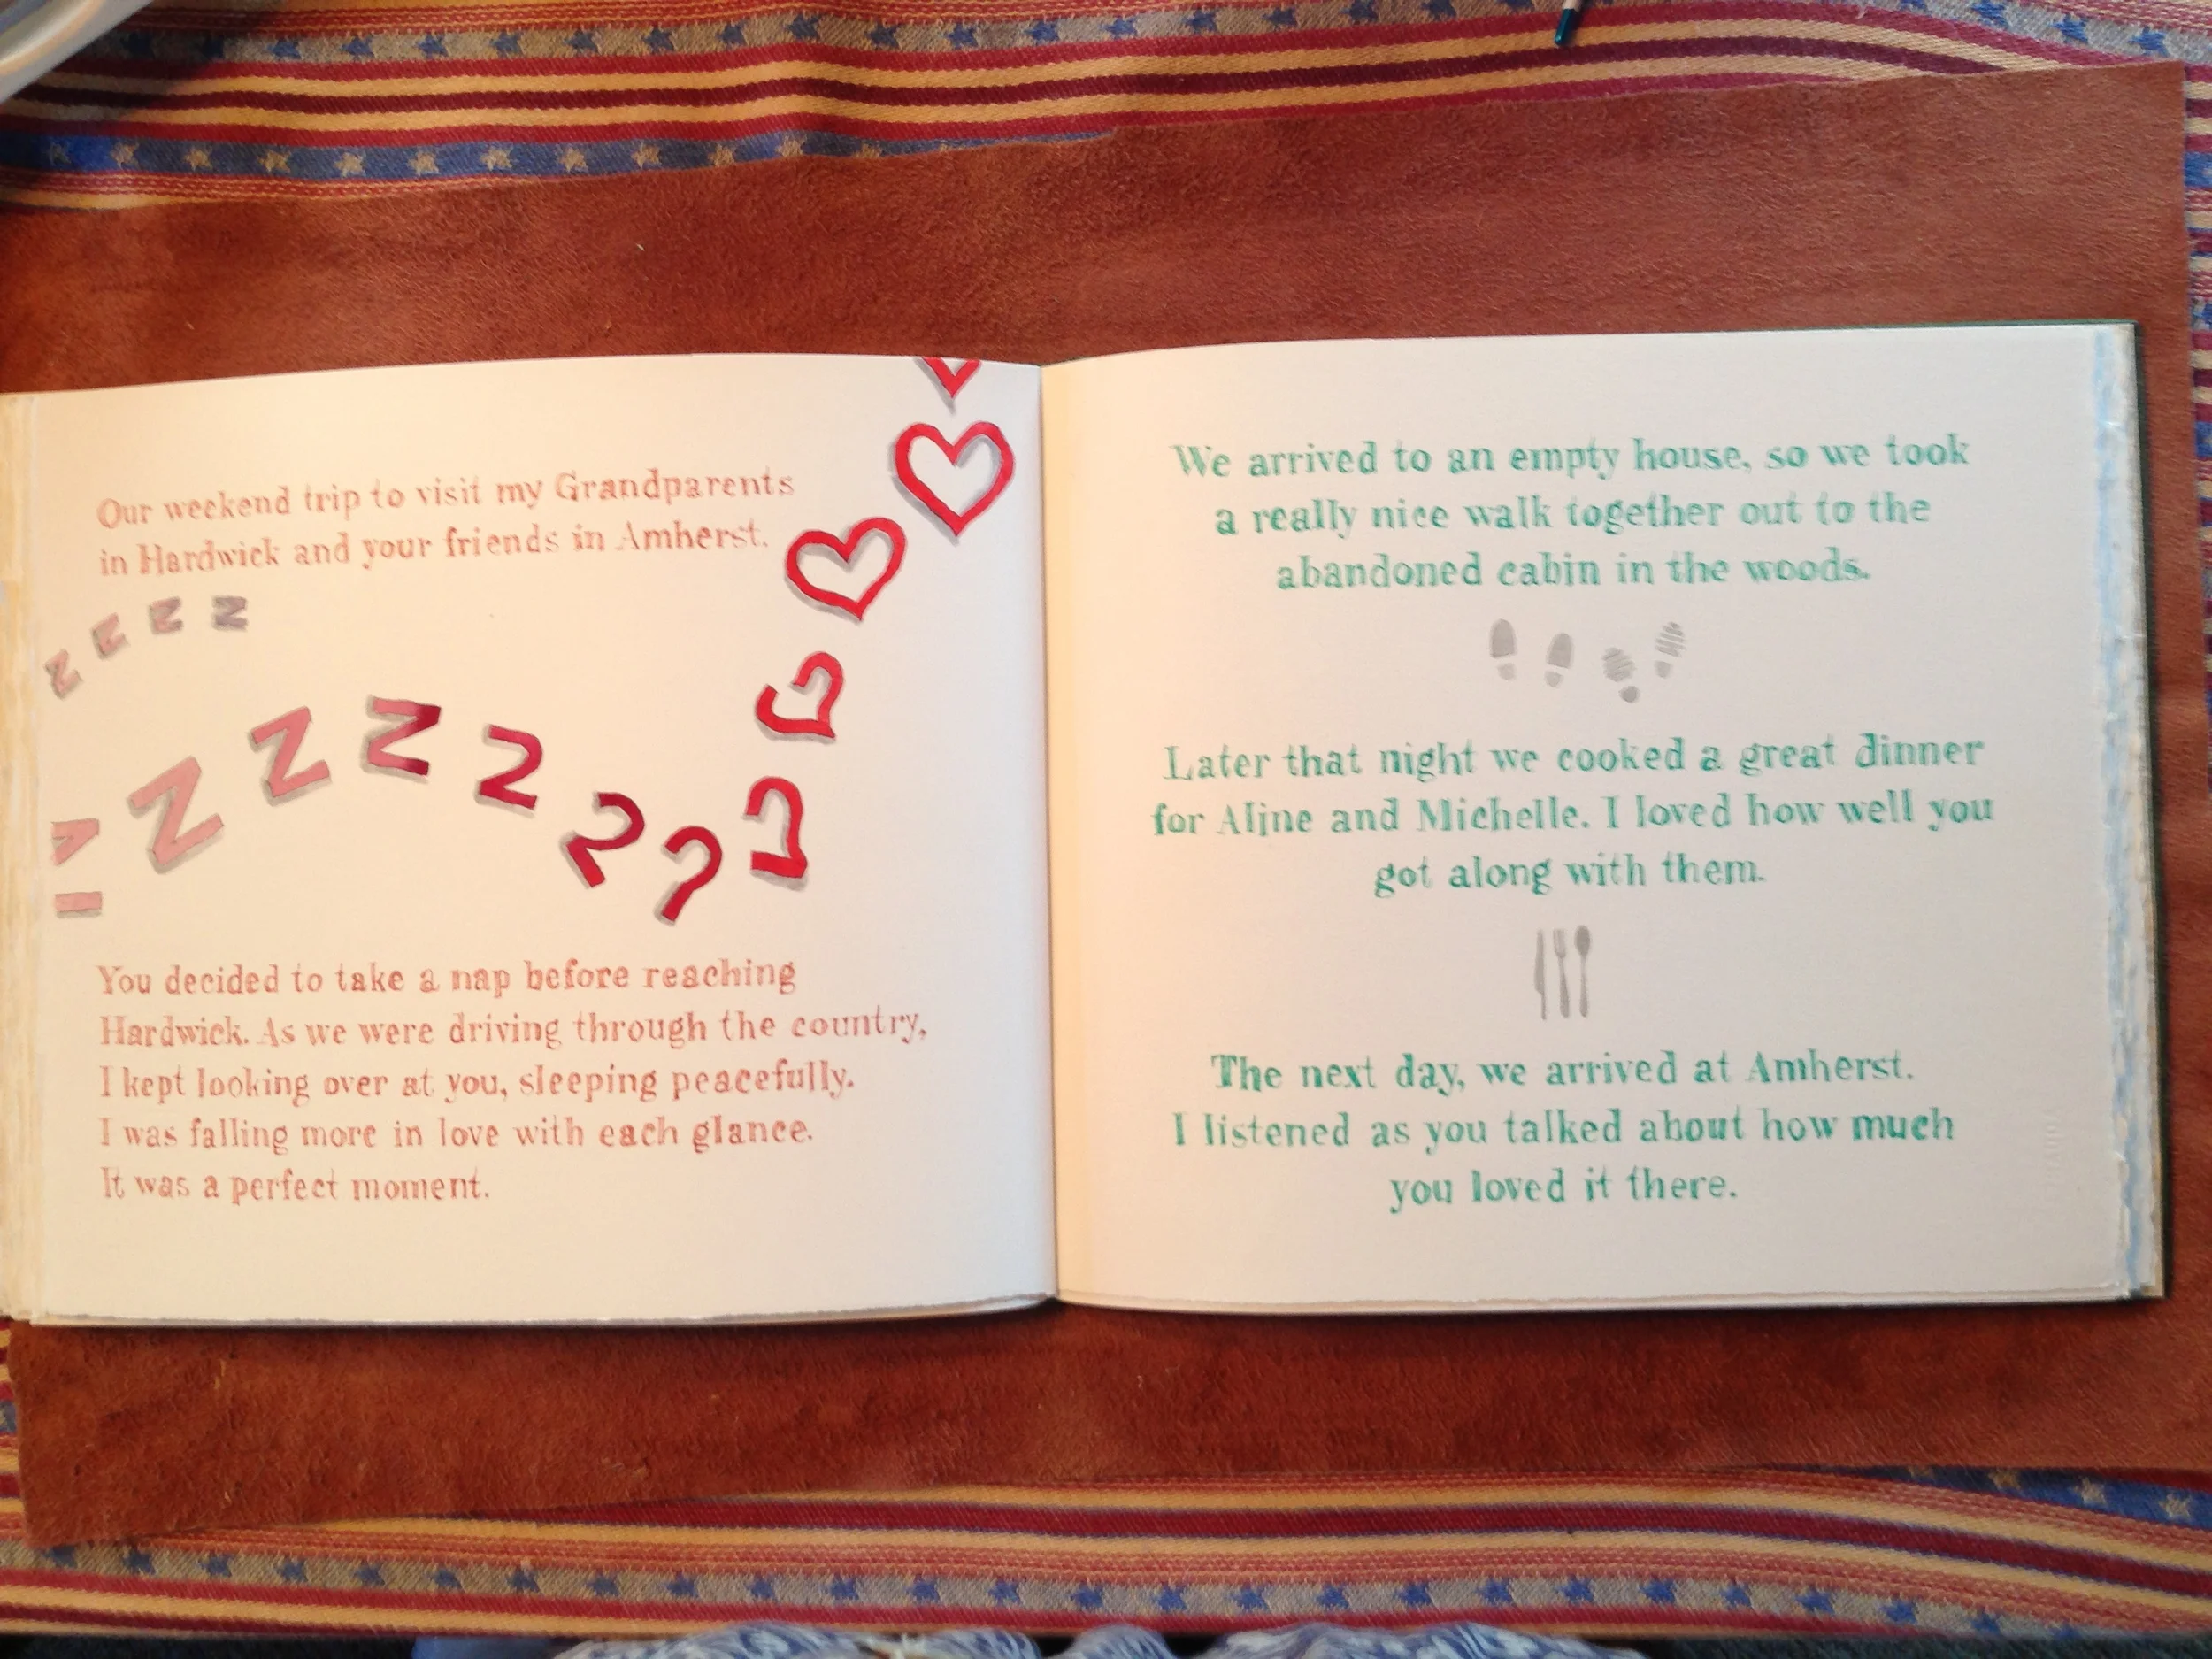 Our weekend trip to visit my Grandparents
in Hardwick and your friends in Amherst.
z z z z
Z Z Z
You decided to take a nap before reaching
Hardwick. As we were driving through the country,
I kept looking over at you, sleeping peacefully.
I was falling more in love with each glance.
It was a perfect moment.
We arrived to an empty house, so we took
a really nice walk together out to the
abandoned cabin in the woods.
Later that night we cooked a great dinner
for Aline and Michelle. I loved how well you
got along with them.
The next day, we arrived at Amherst.
I listened as you talked about how much
you loved it there.